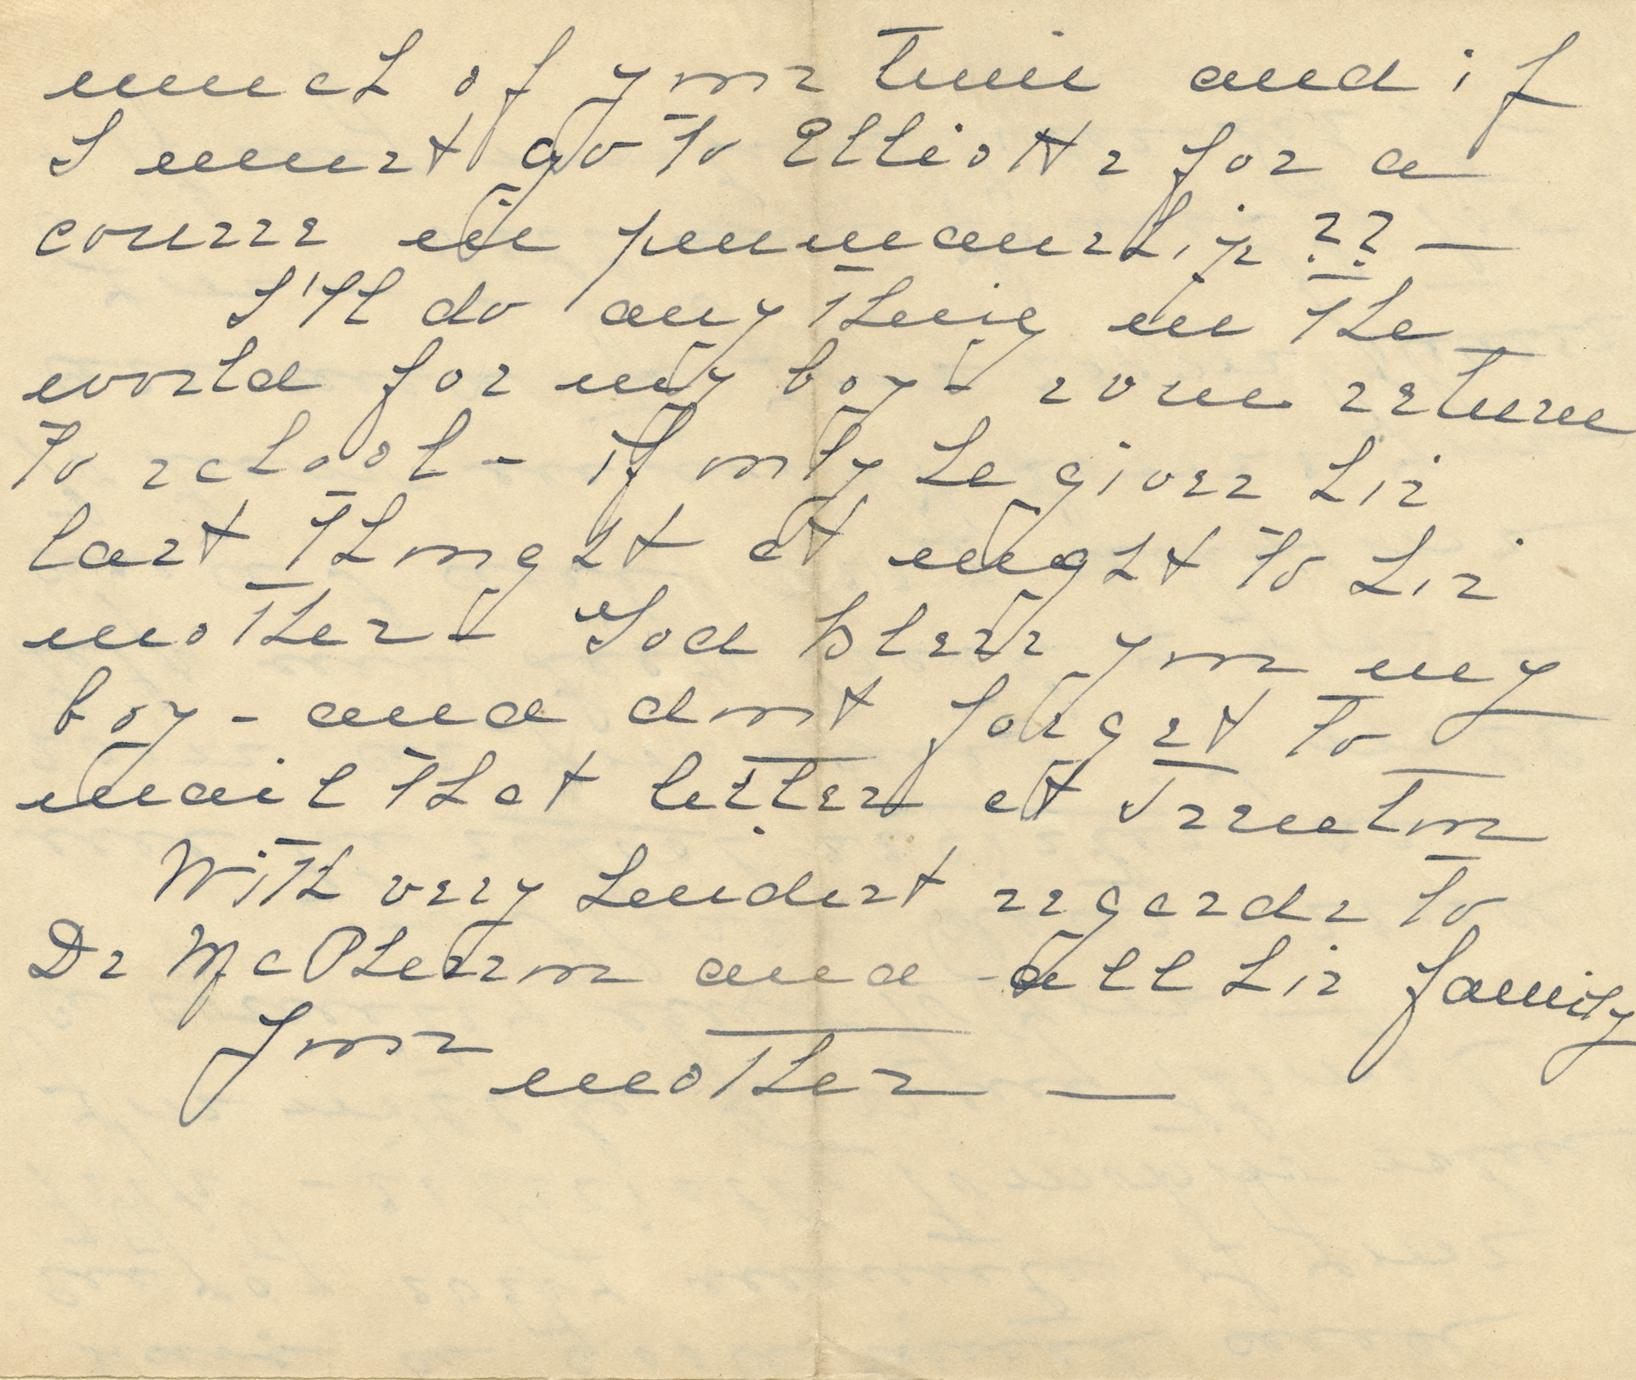 much of your time and if
I must go to Elliotts for a
course in penmanship ?? —
I'll do anything in the
world for my boy - soon return
to school - if only he gives his
last thought at night to his
mother - God bless you my
boy - and dont forget to
mail that letter at Trenton
With very kindest regards to
Dr McPherson and all his family
Your
mother —